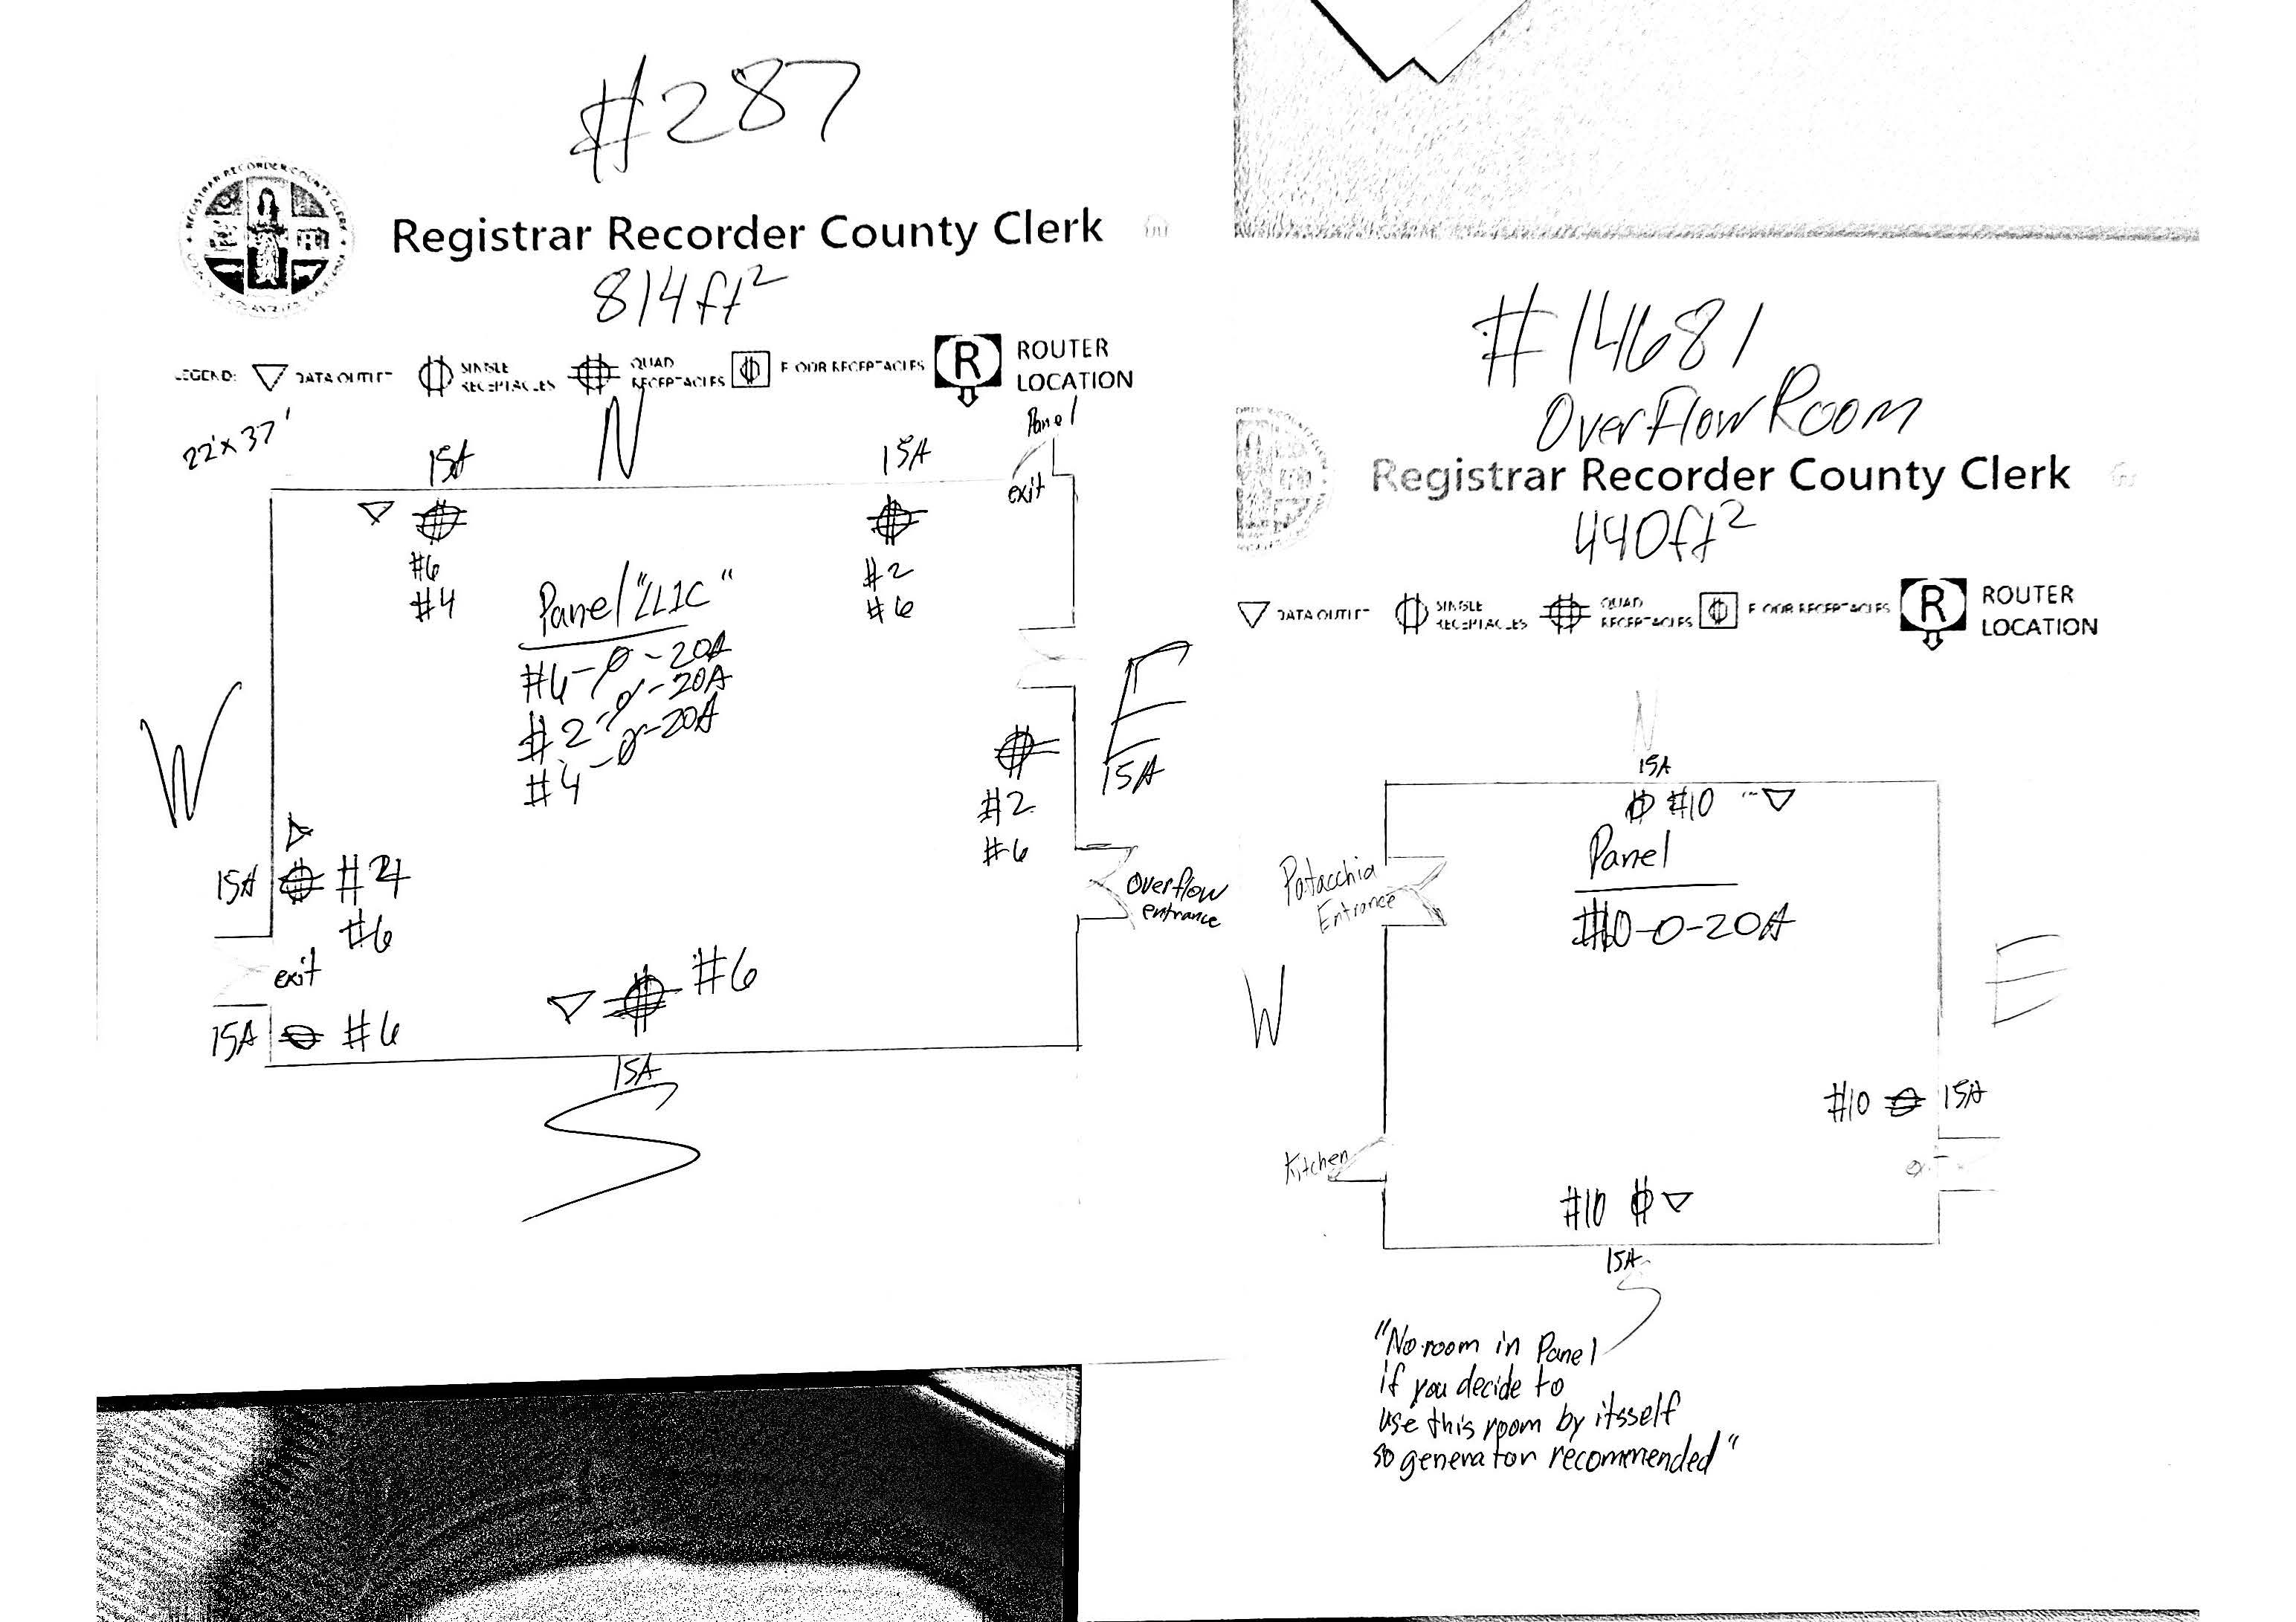 #287
Registrar Recorder County Clerk
814ft²
LEGEND: DATA OUTLET SINGLE RECEPTACLES QUAD RECEPTACLES FLOOR RECEPTACLES R ROUTER LOCATION
22'x37'
N
Panel
15A
15A
exit
#6
#4
#2
#6
Panel "LL1C"
#6-0-20A
#2-0-20A
#4-0-20A
W
E
15A
#2
#6
15A
#6
Overflow
entrance
exit
15A #6
#6
15A
S
#14681
OverFlow Room
Registrar Recorder County Clerk
440ft²
DATA OUTLET SINGLE RECEPTACLES QUAD RECEPTACLES FLOOR RECEPTACLES R ROUTER LOCATION
N
15A
#10
Panel
#10-0-20A
Patacchia
Entrance
W
E
#10 15A
Kitchen
#10
15A
S
"No room in Panel
if you decide to
use this room by itsself
so generator recommended"